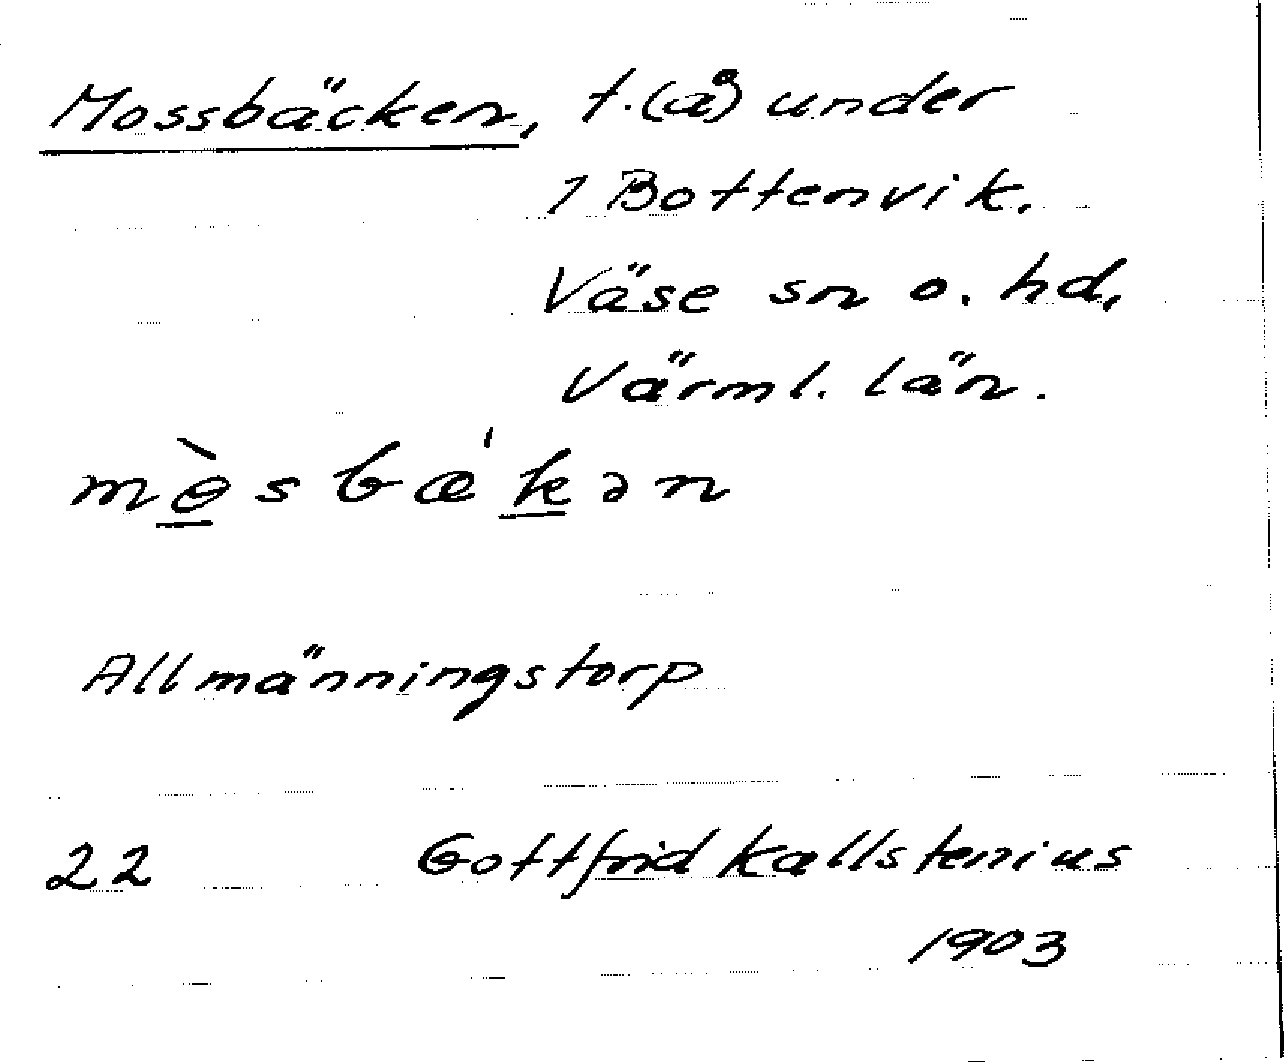 Mossbäcken, t. (å) under
1 Bottenvik.
Väse sn o. hd,
Värml. län.
mө̀sbæ'kən
Allmänningstorp
22 Gottfrid Kallstenius
1903